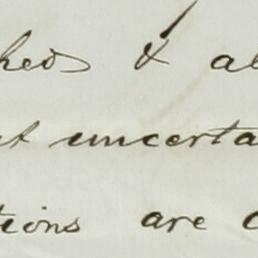 hed & al
t uncerta
tions are